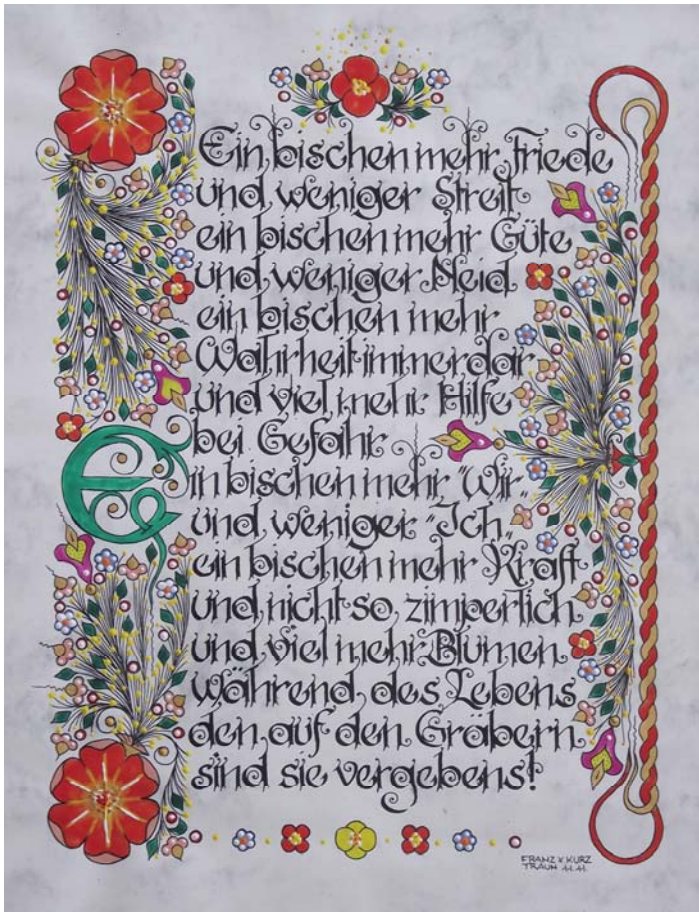 Ein bischen mehr Friede
und weniger Streit
ein bischen mehr Güte
und weniger Neid
ein bischen mehr
Wahrheit immerdar
und viel mehr Hilfe
bei Gefahr
Ein bischen mehr "Wir"
und weniger "Ich"
ein bischen mehr Kraft
und nicht so zimperlich
und viel mehr Blumen
während des Lebens
den auf den Gräbern
sind sie vergebens!
FRANZ X. KURZ
TRAUN 11.11.